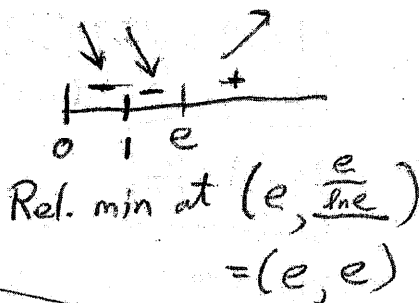 − − +
0 1 e
Rel. min at (e, e/ln e)
= (e, e)